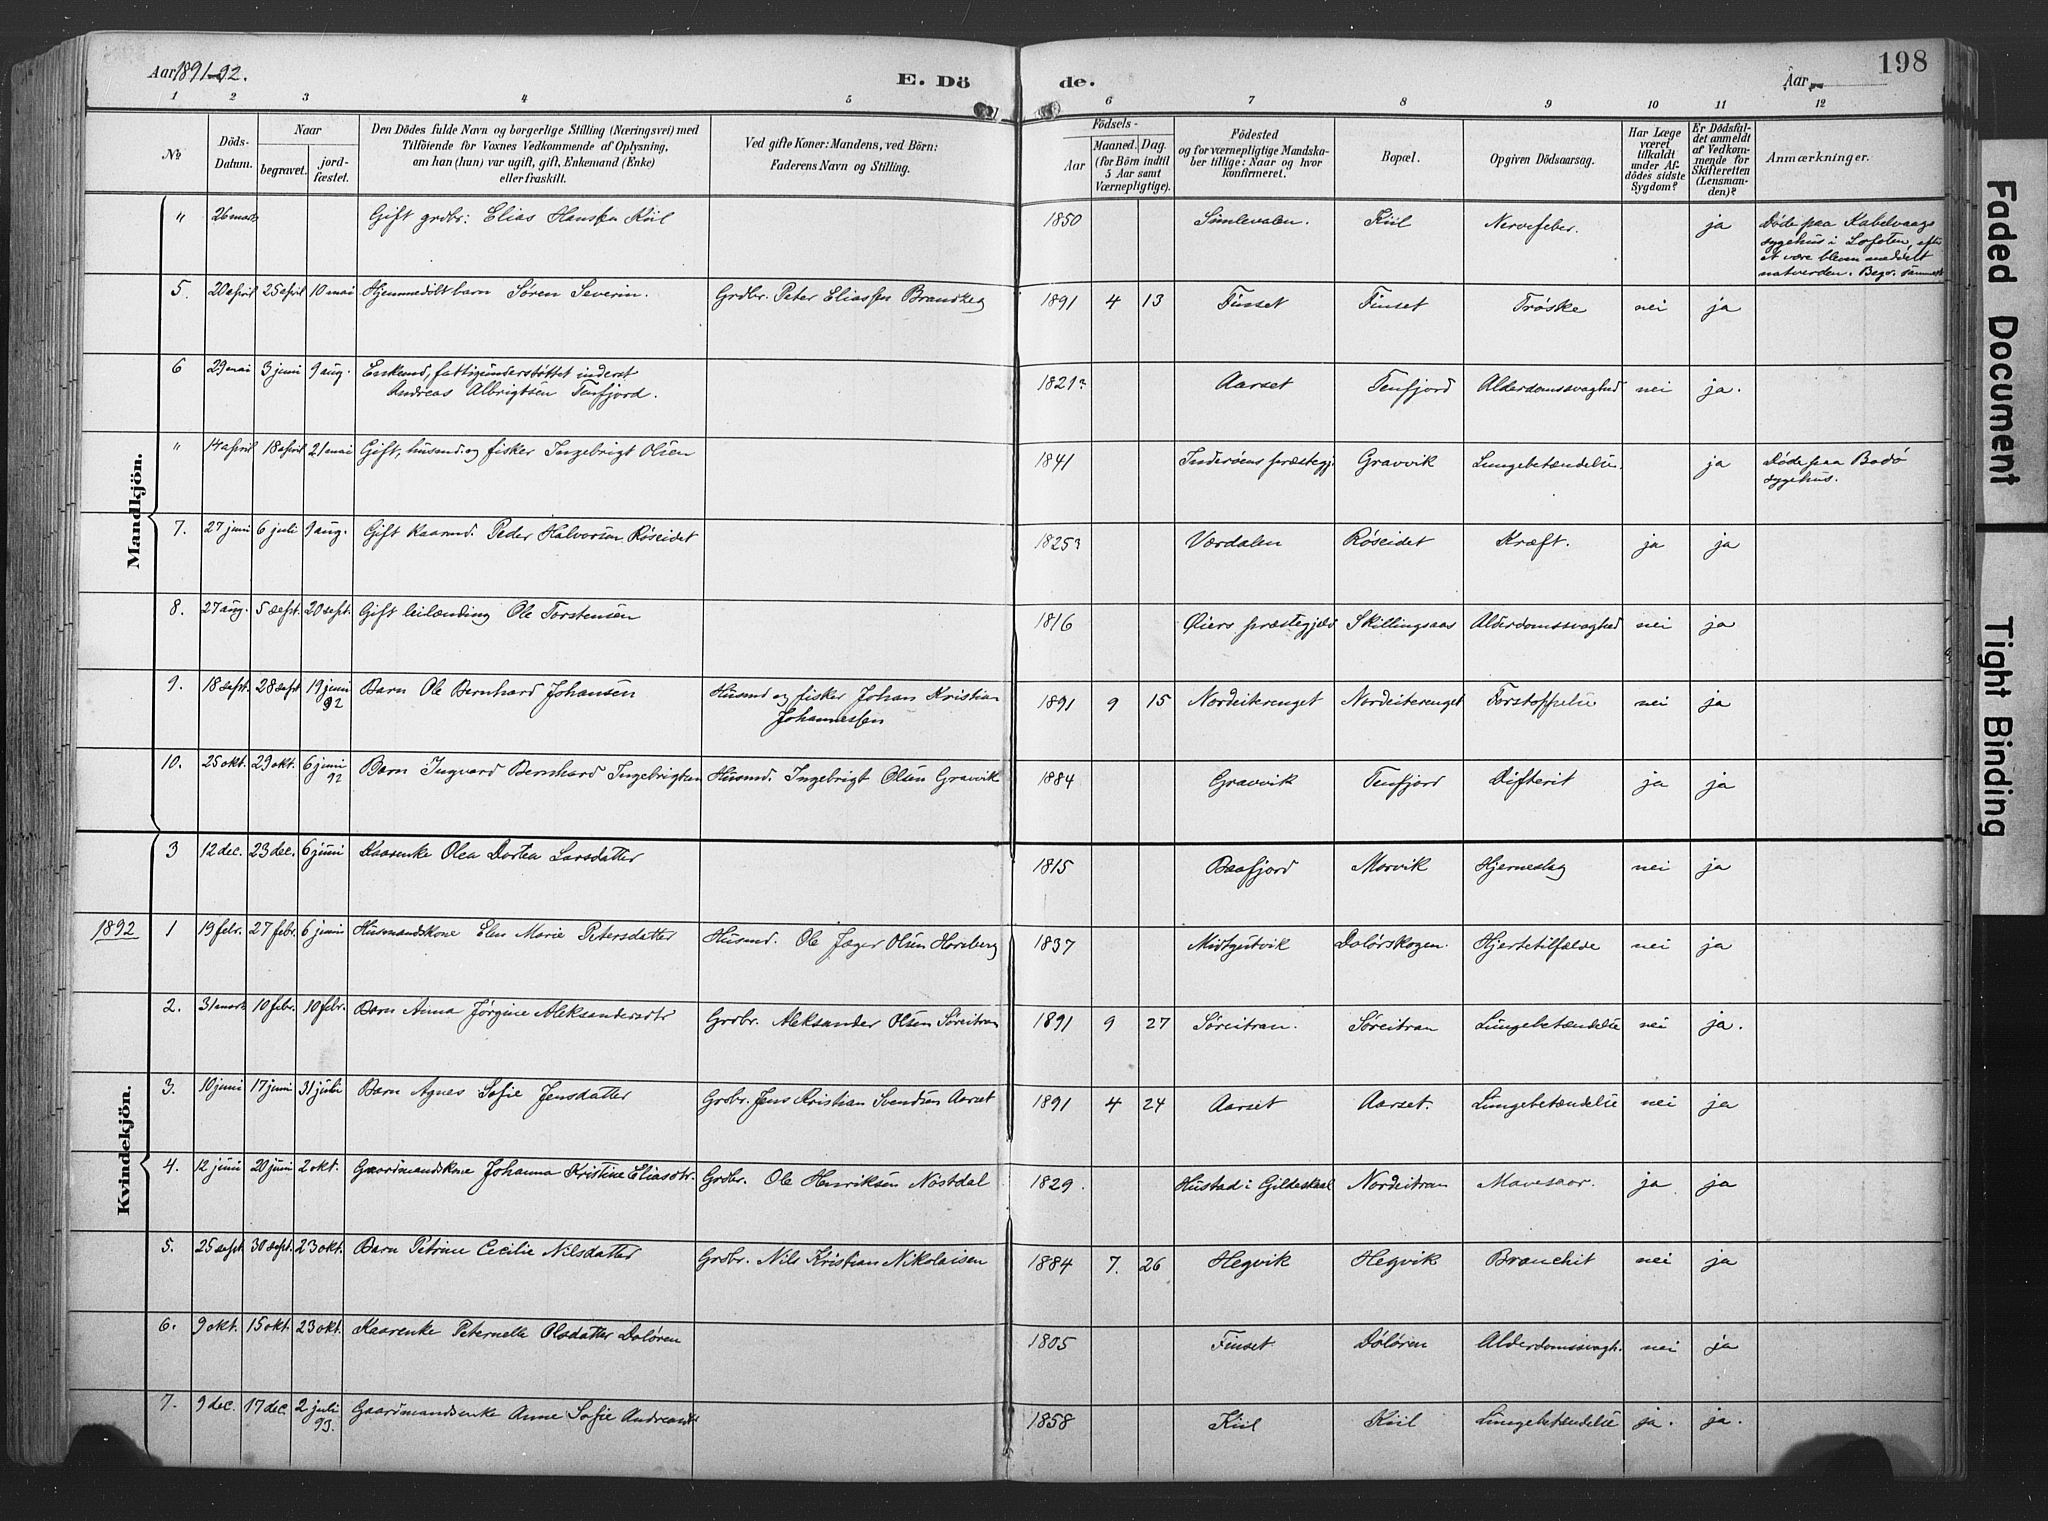 198
Aar 1891-92.
E. Dö
de.
Aar
1 2 3 4 5 6 7 8 9 10 11 12
No
Döds-Datum.
Naar
begravet.
jord-fæstet.
Den Dödes fulde Navn og borgerlige Stilling (Næringsvei) med
Tilföiende for Voxnes Vedkommende af Oplysning,
om han (hun) var ugift, gift, Enkemand (Enke)
eller fraskilt.
Ved gifte Koner: Mandens, ved Börn:
Faderens Navn og Stilling.
Födsels-
Aar
Maaned. Dag.
(for Börn indtil
5 Aar samt
Værnepligtige).
Födested
og for værnepligtige Mandska-
ber tillige: Naar og hvor
konfirmeret.
Bopæl.
Opgiven Dödsaarsag.
Har Læge
været
tilkaldt
under Af-
dödes sidste
Sygdom?
Er Dödsfal-
det anmeldt
af Vedkom-
mende for
Skifteretten
(Lensman-
den)?
Anmærkninger.
Mandkjön.
" 26 marts Gift grdbr: Elias Hansen Kiil 1850 Simlevalen. Kiil Nervefeber. ja Døde paa Kabelvaags
sygehus i Lofoten, efter
at være bleven meddelt
natverden. Begr.
5. 20 april 25 april 10 mai Hjemmedøbt barn Søren Severin. Grdbr. Peter Eliassen Brandzeg 1891 4 13 Finset Finset Trøske nei ja
6 29 mai 3 juni 9 aug. Enkemd, fattigunderstøttet inderst
Andreas Albrigtsen Tenfjord. 1821? Aarset Tenfjord Alderdomssvaghed nei ja.
" 14 april 18 april 21 mai Gift, husmd. og fisker Ingebrigt Olsen 1841 Inderøens præstegj. Gravvik Lungebetændelse. ja Døde paa Bodø
sygehus.
7. 27 juni 6 juli 9 aug. Gift kaarmd. Peder Halvorsen Røseidet 1825? Værdalen Røseidet Kræft. ja ja
8. 27 aug. 5 sept. 20 sept. Gift leilænding Ole Torstensen 1816 Øiers præstegjeld Skillingsaas Alderdomssvaghed nei ja
9. 18 sept. 28 sept 19 juni
92 Barn Ole Bernhard Johansen Husmd og fisker Johan Kristian
Johannessen 1891 9 15 Nordeiterenget Nordeiterenget Forstoppelse nei ja
10. 25 okt. 29 okt. 6 juni
92 Barn Ingvard Bernhard Ingebrigtsen Husmd. Ingebrigt Olsen Gravvik 1884 Gravvik Tenfjord Difterit ja ja
Kvindekjön.
3 12 dec. 23 dec. 6 juni Kaarenke Olea Dortea Larsdatter 1815 Baafjord Marvik Hjerneslag nei ja
1892 1 19 febr. 27 febr. 6 juni Husmandskone Elen Marie Petersdatter Husmd. Ole Jæger Olsen Hornberg 1837 Midtgutvik Dolørskogen. Hjertetilfælde nei ja
2. 31 marts 10 febr. 10 febr. Barn Anna Jørgine Aleksandersdtr Grdbr. Aleksander Olsen Søreitran 1891 9 27 Søreitran. Søreitran Lungebetændelse nei ja.
3. 10 juni 17 juni 31 juli Barn Agnes Sofie Jensdatter Grdbr. Jens Kristian Svendsen Aarset 1891 4 24 Aarset Aarset. Lungebetændelse nei ja
4. 12 juni 20 juni 2 okt. Gaardmandskone Johanna Kristine Eliasdtr. Grdbr. Ole Henriksen Nøstdal 1829. Hustad i Gildeskaal Nordeitran Mavesaar. ja ja
5. 25 sept 30 sept. 23 okt. Barn Petrine Cecilie Nilsdatter Grdbr. Nils Kristian Nikolaisen 1884 7. 26 Hegvik Hegvik Bronchit nei ja
6. 9 okt. 15 okt. 23 okt. Kaarenke Peternelle Olsdatter Doløren 1805 Finset Doløren Alderdomssvagh. nei ja
7. 9 dec. 17 dec. 2 juli
93. Gaardmandsenke Anne Sofie Andreasdtr 1858 Kiil Kiil Lungebetændelse ja. ja.
Faded Document
Tight Binding